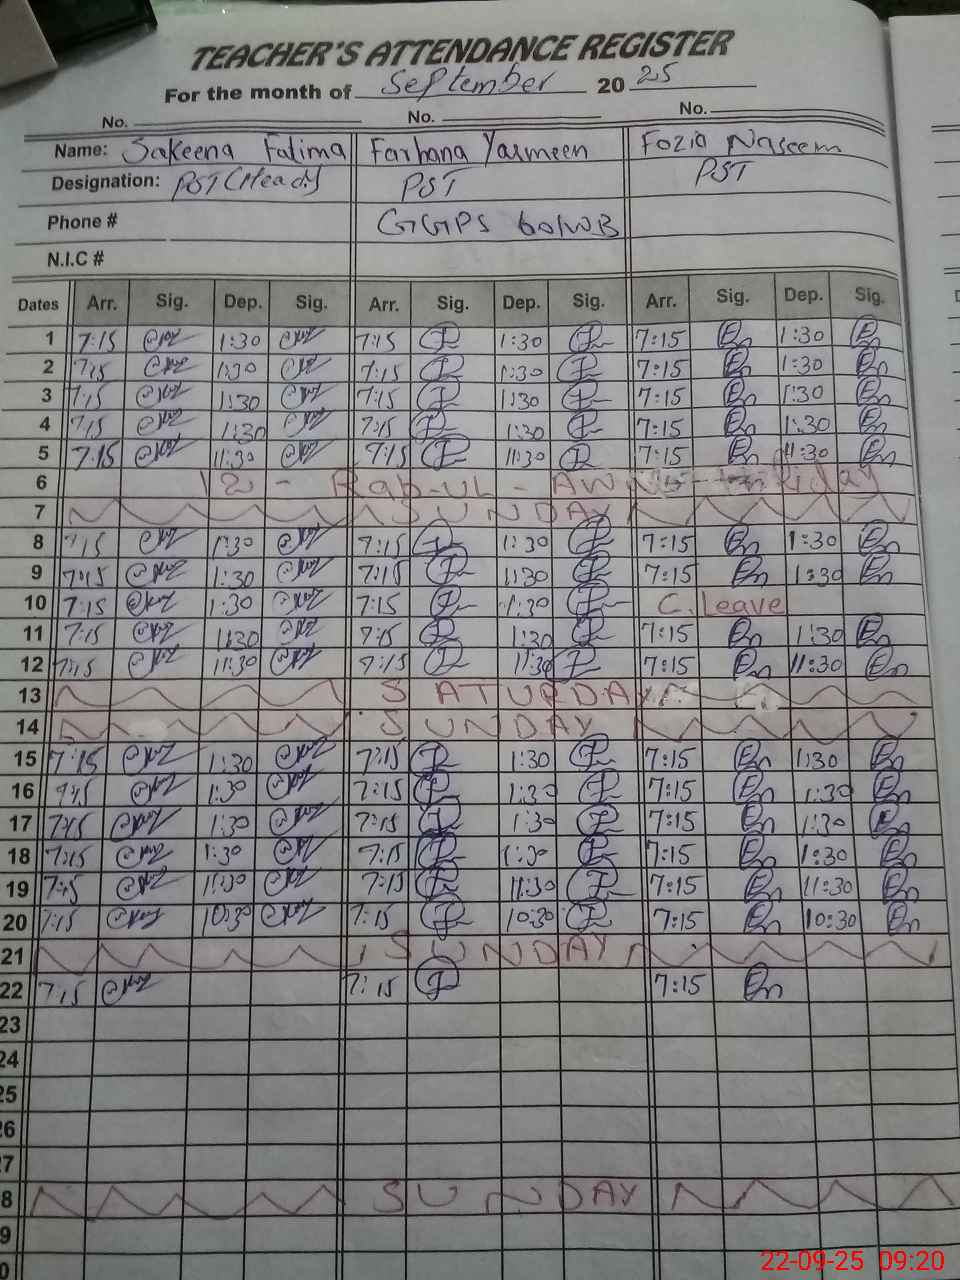 TEACHER'S ATTENDANCE REGISTER
For the month of September 20 25
No. No. No.
Name: Sakeena Fatima Farhana Yasmeen Fozia Naseem
Designation: PST (Head) PST PST
Phone # GGPS 60/WB
N.I.C #
Dates Arr. Sig. Dep. Sig. Arr. Sig. Dep. Sig. Arr. Sig. Dep. Sig.
1 7:15 1:30 7:15 1:30 7:15 1:30
2 7:15 1:30 7:15 1:30 7:15 1:30
3 7:15 1:30 7:15 1:30 7:15 1:30
4 7:15 1:30 7:15 1:30 7:15 1:30
5 7:15 11:30 7:15 11:30 7:15 11:30
6 12 - Rab-ul-Aw
7 SUNDAY
8 7:15 1:30 7:15 1:30 7:15 1:30
9 7:15 1:30 7:15 1:30 7:15 1:30
10 7:15 1:30 7:15 1:30 C. Leave
11 7:15 1:30 7:15 1:30 7:15 1:30
12 7:15 11:30 7:15 11:30 7:15 11:30
13 SATURDAY
14 SUNDAY
15 7:15 1:30 7:15 1:30 7:15 1:30
16 7:15 1:30 7:15 1:30 7:15 1:30
17 7:15 1:30 7:15 1:30 7:15 1:30
18 7:15 1:30 7:15 1:30 7:15 1:30
19 7:15 11:30 7:15 11:30 7:15 11:30
20 7:15 10:30 7:15 10:30 7:15 10:30
21 SUNDAY
22 7:15 7:15 7:15
23
24
25
26
27
8 SUNDAY
9
0
22-09-25 09:20